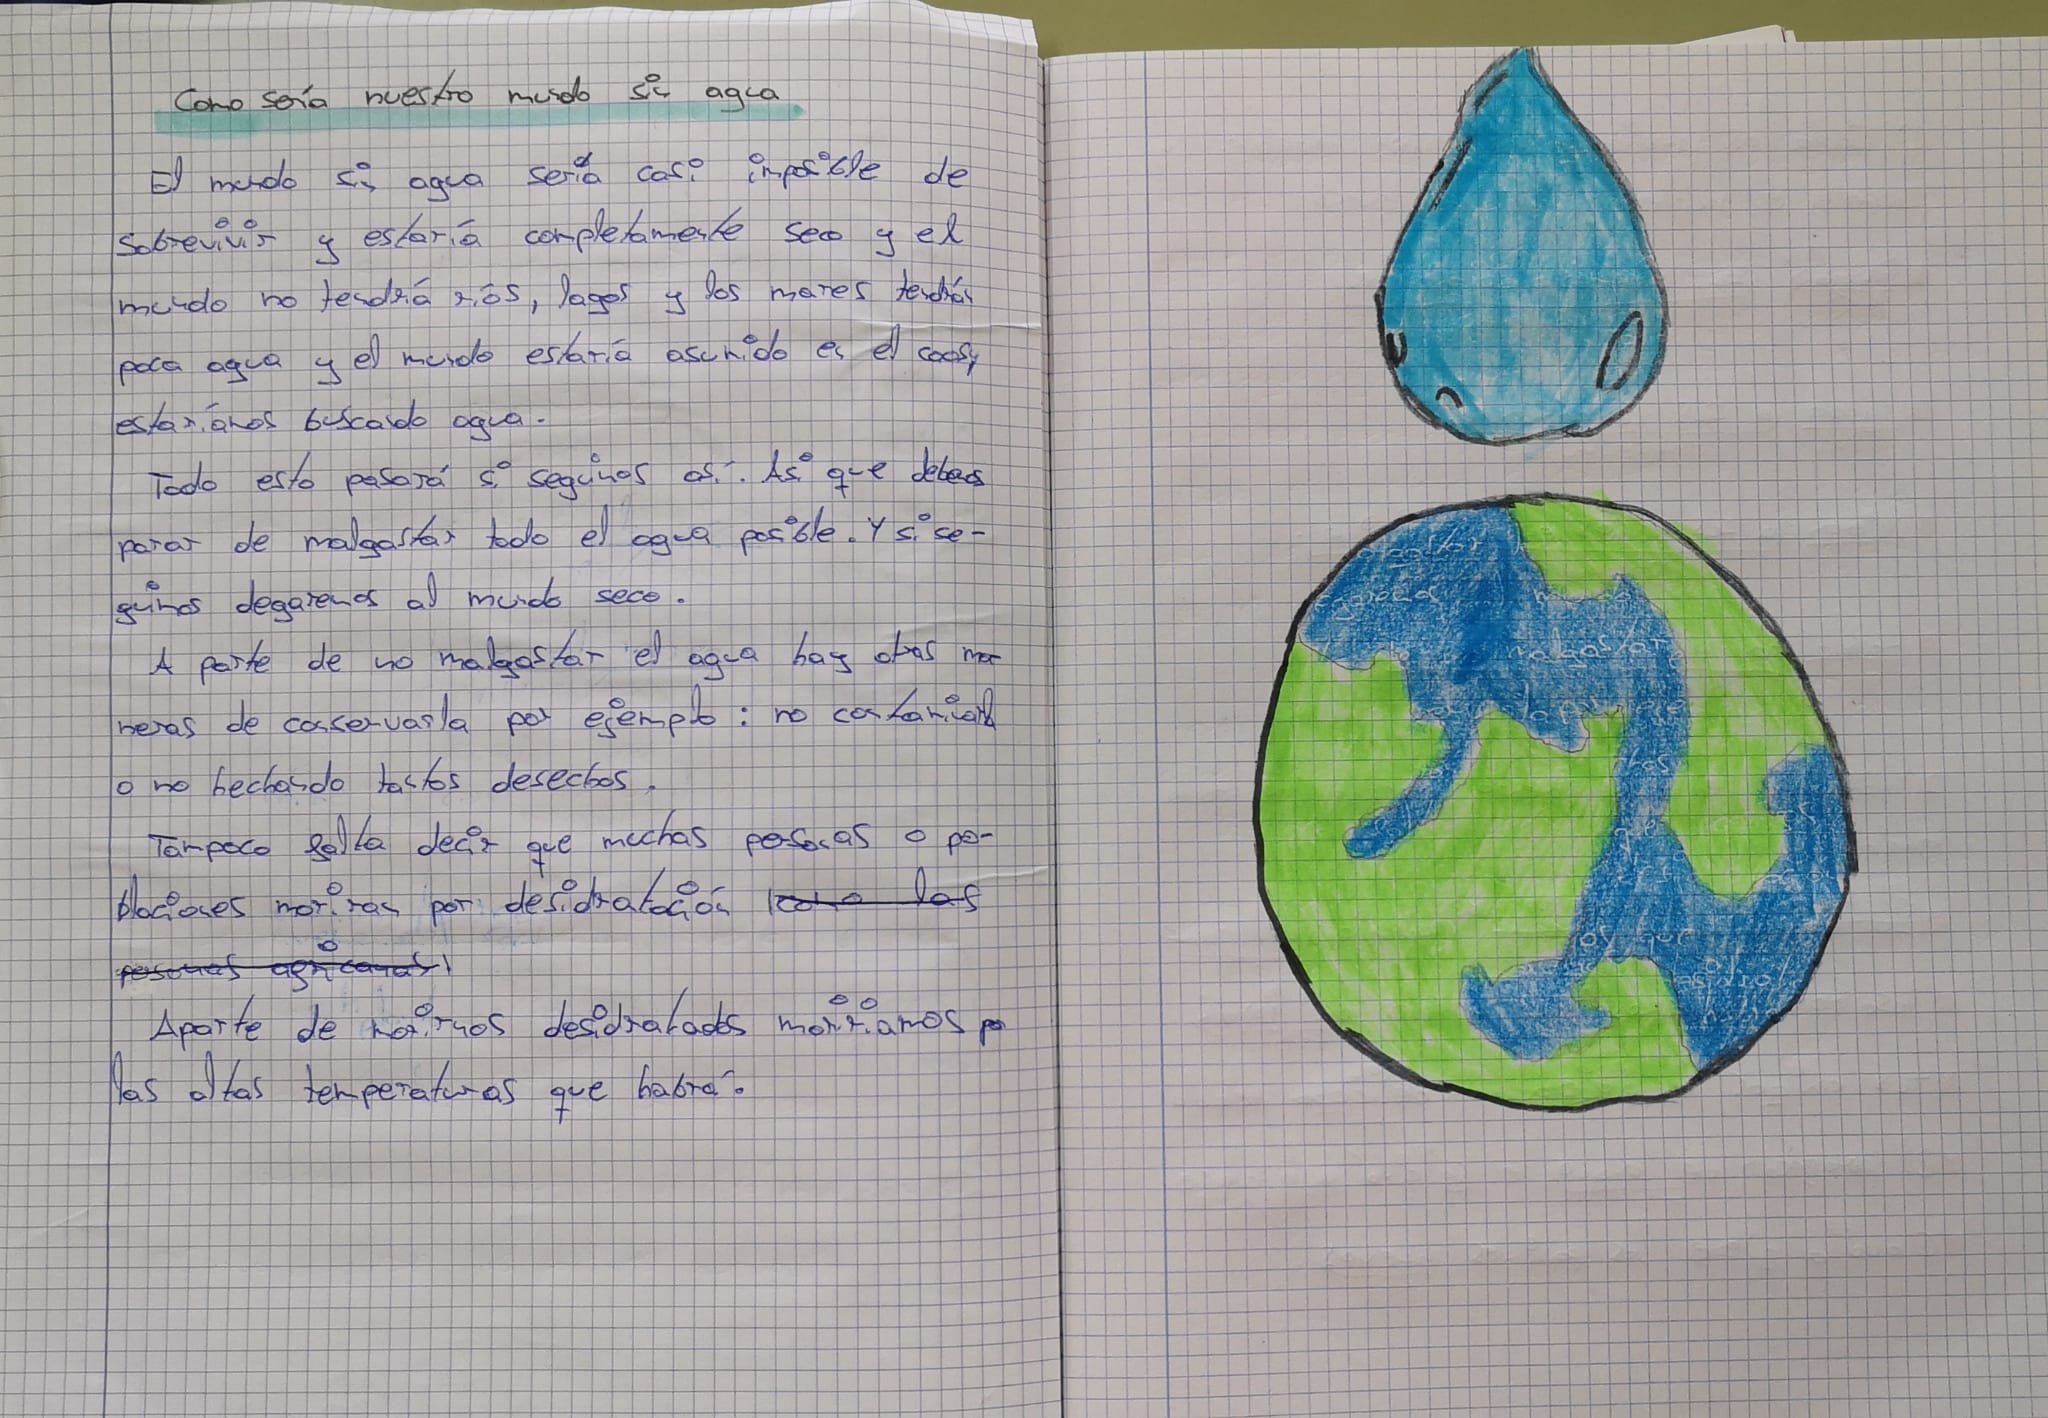 Como sería nuestro mundo sin agua
El mundo sin agua sería casi imposible de
sobrevivir y estaría completamente seco y el
mundo no tendría ríos, lagos y los mares tendrán
poca agua y el mundo estaría asumido en el caos y
estaríamos buscando agua.
Todo esto pasará si seguimos así. Así que debemos
parar de malgastar todo el agua posible. Y si se-
guimos degaremos al mundo seco.
A parte de no malgastar el agua hay otras ma
neras de conservarla por ejemplo: no contaminar
o no hechando tantos desechos.
Tampoco falta decir que muchas personas o po-
blaciones moriran por desidratación como las
personas africanas
Aparte de morirnos desidratados moriríamos por
las altas temperaturas que habrá.
malgastar
que